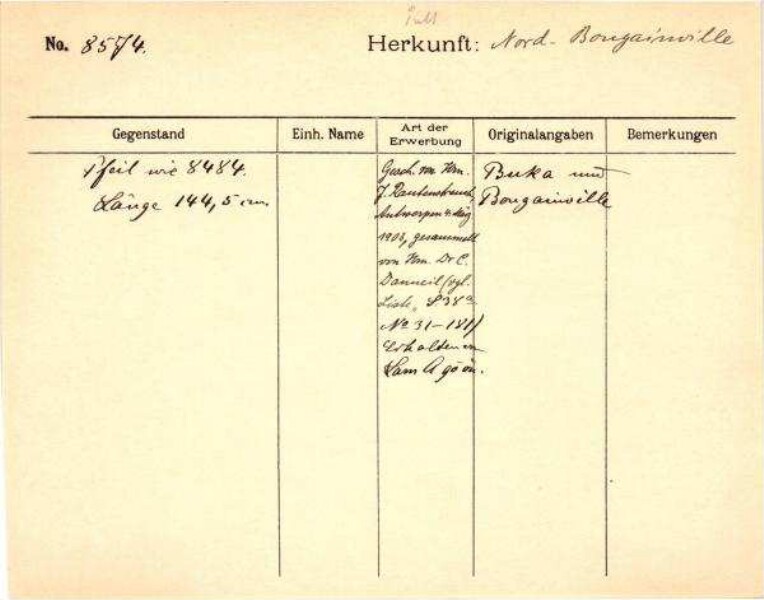 No. 8574.
Herkunft: Nord-Bougainville
Gegenstand
Einh. Name
Art der
Erwerbung
Originalangaben
Bemerkungen
Pfeil wie 8484.
Länge 144,5 cm
Gesch. von Hrn.
J. Rautenstrauch,
Antwerpen
1903, gesammelt
von Hrn. Dr C.
Danneil (vgl.
Liste, S 38a
No 31–181/
Erhalten
Buka und
Bougainville